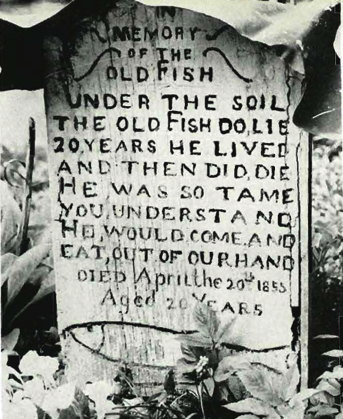 IN
MEMORY
OF THE
OLD FISH
UNDER THE SOIL
THE OLD FISH DO, LIE
20, YEARS HE LIVED
AND THEN DID, DIE
HE WAS SO TAME
YOU, UNDERSTAND
HE, WOULD, COME, AND
EAT, OUT, OF OUR HAND
DIED April the 20th 1855
Aged 20 YEARS